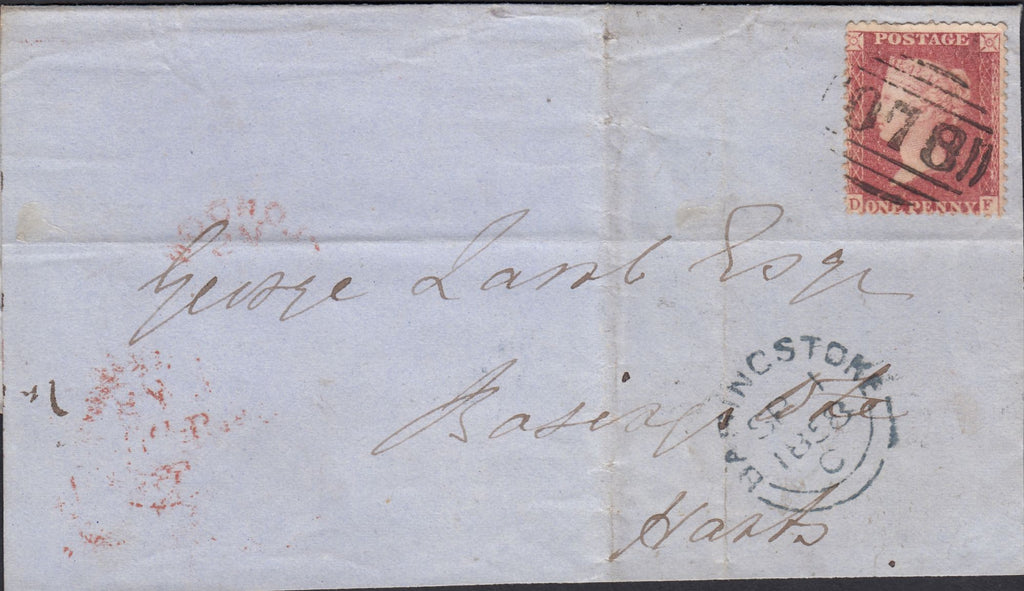 POSTAGE
078
D ONE PENNY F
George Lamb Esqr
BASINGSTOKE
SP
1858
C
Basingstoke
Hants